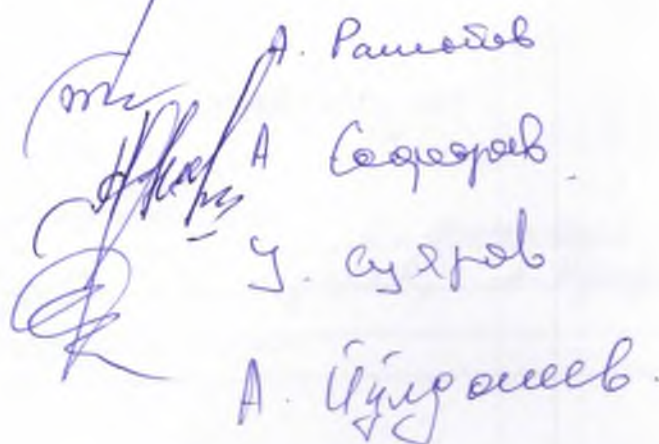 А. Рашотов
А Сафаров.
У. Суяров
А. Йўлдошев.